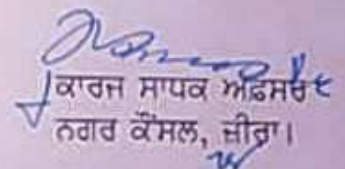 ਕਾਰਜ ਸਾਧਕ ਅਫਸਰ
ਨਗਰ ਕੌਂਸਲ, ਜ਼ੀਰਾ।